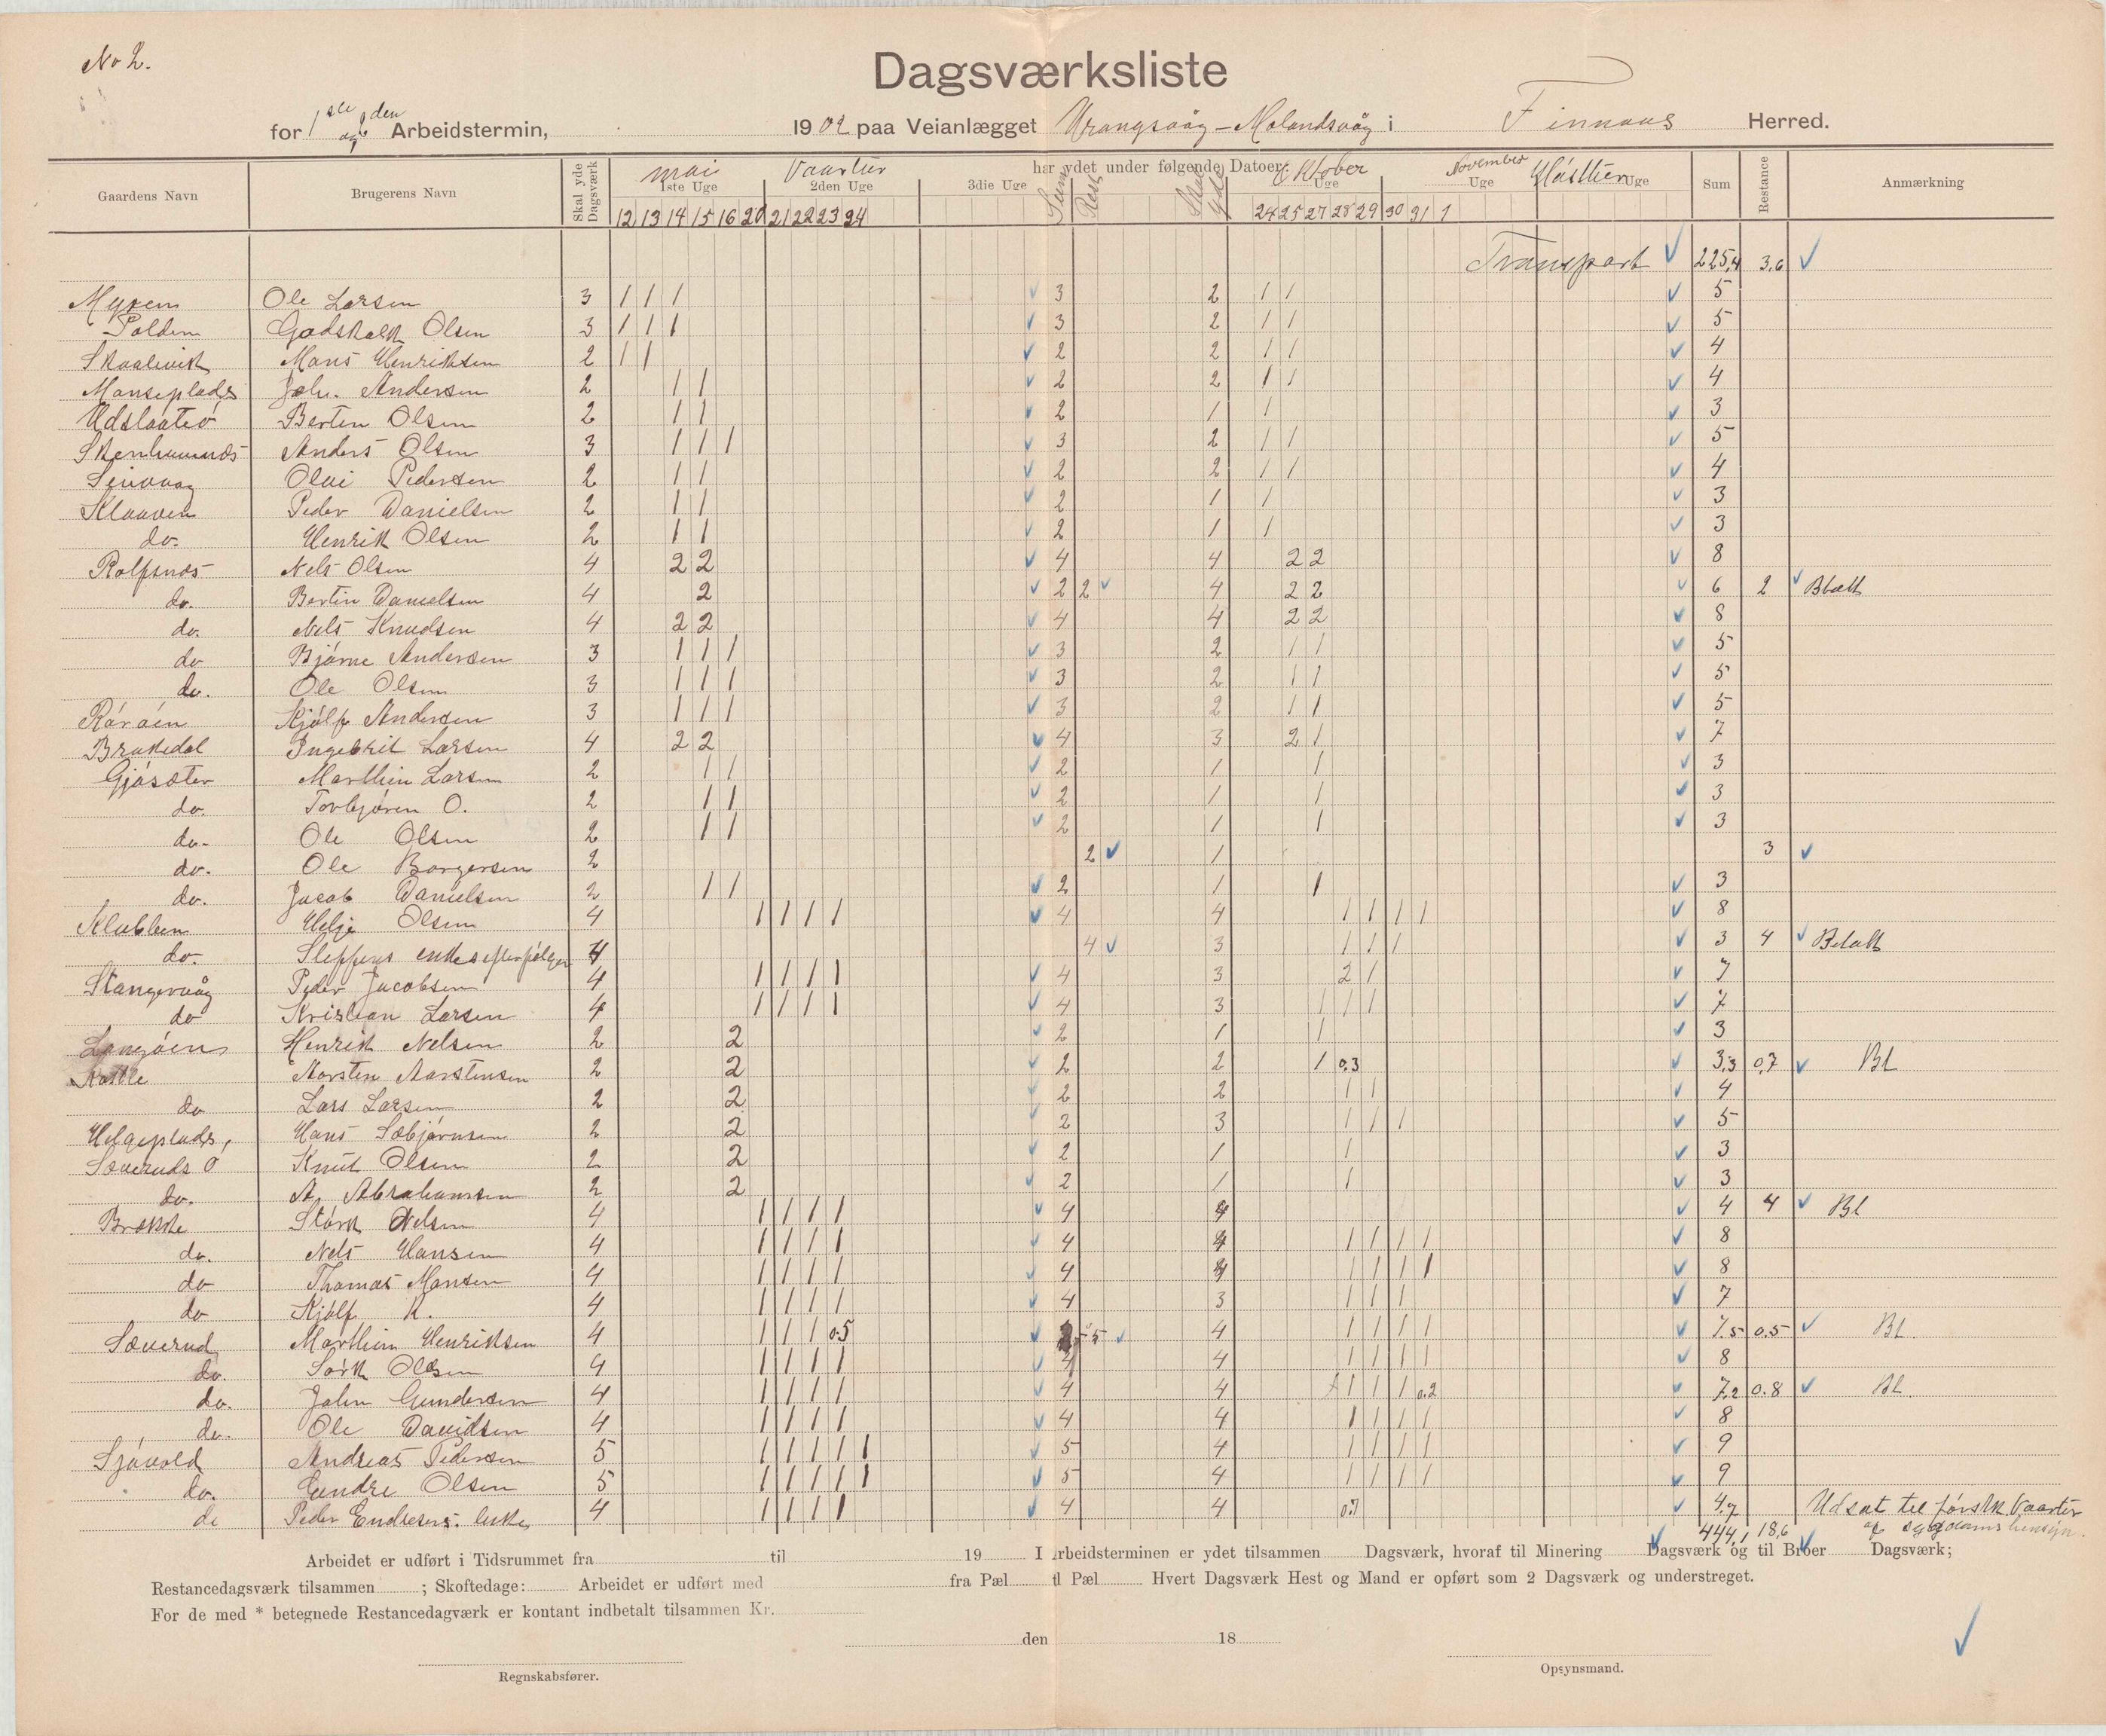 No 2.
Dagsværksliste
for 1ste og 2den Arbeidstermin, 1902 paa Veianlægget Urangsvåg - Molandsvåg i Finnaas Herred.
Gaardens Navn Brugerens Navn Skal yde Dagsværk har ydet under følgende Datoer: Sum Restance Anmærkning
mai Vaartur Oktober November Høsttur
1ste Uge 2den Uge 3die Uge Sum Rest Skal yde Uge Uge Uge
12 13 14 15 16 20 21 22 23 24 24 25 27 28 29 30 31 1
Transport 225,4 3,6
Myren Ole Larsen 3 1 1 1 3 2 1 1 5
Polden Godskalk Olsen 3 1 1 1 3 2 1 1 5
Skaalevik Mons Henriksen 2 1 1 2 2 1 1 4
Monseplads Joh. Andersen 2 1 1 2 2 1 1 4
Udslaatø Bertin Olsen 2 1 1 2 1 1 3
Anders Olsen 3 1 1 1 3 2 1 1 5
Olai Pedersen 2 1 1 2 2 1 1 4
Klaaven Peder Danielsen 2 1 1 2 1 1 3
do. Henrik Olsen 2 1 1 2 1 1 3
Rolfsnæs Nels Olsen 4 2 2 4 4 2 2 8
do. Bertin Danielsen 4 2 2 2 4 2 2 6 2 Btalt
do. Nels Knudsen 4 2 2 4 4 2 2 8
do Bjørne Andersen 3 1 1 1 3 2 1 1 5
do. Ole Olsen 3 1 1 1 3 2 1 1 5
Røråen Kjølf Andersen 3 1 1 1 3 2 1 1 5
Brakedal Ingebrit Larsen 4 2 2 4 3 2 1 7
Gjøsæter Marthin Larsen 2 1 1 2 1 1 3
do. Torbjøren O. 2 1 1 2 1 1 3
do. Ole Olsen 2 1 1 2 1 1 3
do. Ole Borgersen 2 2 1 3
do. Jacob Danielsen 2 1 1 2 1 1 3
Klubben Helje Olsen 4 1 1 1 1 4 4 1 1 1 1 8
do. Steffens enkes efterfølger 4 4 3 1 1 1 3 4 Betalt
Stangervåg Peder Jacobsen 4 1 1 1 1 4 3 2 1 7
do Kristian Larsen 4 1 1 1 1 4 3 1 1 1 7
Langøen Henrik Nelsen 2 2 2 1 1 3
Aarsten Aarstensen 2 2 2 2 1 0,3 3,3 0,7 Bl
do Lars Larsen 2 2 2 2 1 1 4
Helgeplads, Hans Sæbjørnsen 2 2 2 3 1 1 1 5
Sæveruds Ø Knut Olsen 2 2 2 1 1 3
do. A. Abrahamsen 2 2 2 1 1 3
Brække Størk Nelsen 4 1 1 1 1 4 4 4 4 Bl
do. Nels Hansen 4 1 1 1 1 4 4 1 1 1 1 8
do Thomas Monsen 4 1 1 1 1 4 4 1 1 1 1 8
do Kjølf K. 4 1 1 1 1 4 3 1 1 1 7
Sæverud Marthin Henriksen 4 1 1 1 0.5 4 1 1 1 1 7.5 0.5 Bl.
do. Størk Olsen 4 1 1 1 1 4 4 1 1 1 1 8
do. John Gundersen 4 1 1 1 1 4 4 1 1 1 1 0.2 7,2 0.8 Bl.
do. Ole Davidsen 4 1 1 1 1 4 4 1 1 1 1 8
Sjøvold Andreas Pedersen 5 1 1 1 1 1 5 4 1 1 1 1 9
do. Endre Olsen 5 1 1 1 1 1 5 4 1 1 1 1 9
do Peder Endresens enke 4 1 1 1 1 4 4 0.7 4,7 Udsat til første Vaartur
444,1 18,6 af sygdoms hensyn.
Arbeidet er udført i Tidsrummet fra til 19 I Arbeidsterminen er ydet tilsammen Dagsværk, hvoraf til Minering Dagsværk og til Broer Dagsværk;
Restancedagsværk tilsammen ; Skoftedage: Arbeidet er udført med fra Pæl til Pæl Hvert Dagsværk Hest og Mand er opført som 2 Dagsværk og understreget.
For de med * betegnede Restancedagværk er kontant indbetalt tilsammen Kr.
den 18
Regnskabsfører. Opsynsmand.